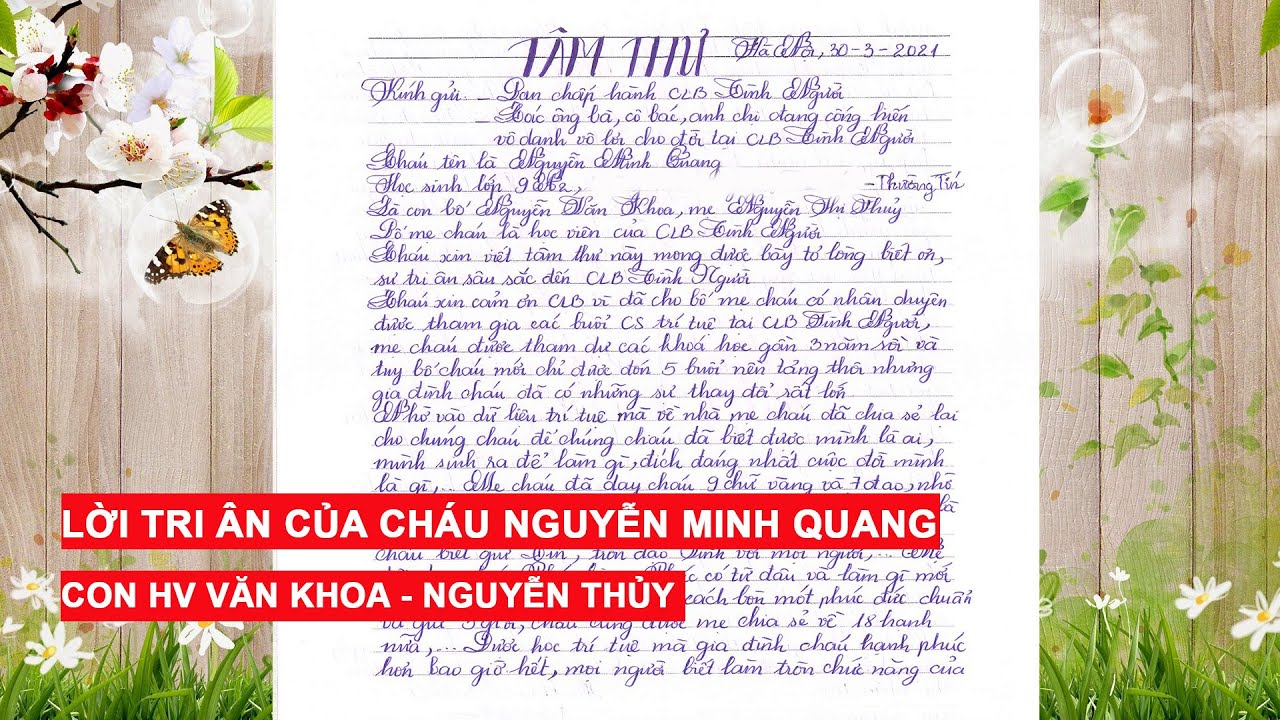 TÂM THƯ
Hà Nội, 30-3-2021
Kính gửi: - Ban chấp hành CLB Tình Người
- Các ông bà, cô bác, anh chị đang cống hiến
vô danh vô lợi cho đời tại CLB Tình Người
Cháu tên là Nguyễn Minh Quang
Học sinh lớp 9
- Thường Tín
Là con bố Nguyễn Văn Khoa, mẹ Nguyễn Thị Thuỷ
Bố mẹ cháu là học viên của CLB Tình Người
Cháu xin viết tâm thư này mong được bày tỏ lòng biết ơn,
sự tri ân sâu sắc đến CLB Tình Người
Cháu xin cảm ơn CLB vì đã cho bố mẹ cháu có nhân duyên
được tham gia các buổi CS trí tuệ tại CLB Tình Người,
mẹ cháu được tham dự các khoá học gần 3 năm rồi và
tuy bố cháu mới chỉ được đến 5 buổi nền tảng thôi nhưng
gia đình cháu đã có những sự thay đổi rất lớn
Nhờ vào dữ liệu trí tuệ mà về nhà mẹ cháu đã chia sẻ lại
cho chúng cháu để chúng cháu đã biết được mình là ai,
mình sinh ra để làm gì, đích đáng nhất cuộc đời mình
là gì,... Mẹ cháu đã dạy cháu 9 chữ vàng và 7 đạo, nhờ
là
LỜI TRI ÂN CỦA CHÁU NGUYỄN MINH QUANG
cháu biết giữ Tín, tròn đạo Tình với mọi người,... Mẹ
có từ đâu và làm gì mới
CON HV VĂN KHOA - NGUYỄN THỦY
cách bồn một phúc đức chuẩn
và giữ 5 giới, cháu cũng được mẹ chia sẻ về 18 hạnh
nữa,... Được học trí tuệ mà gia đình cháu hạnh phúc
hơn bao giờ hết, mọi người biết làm tròn chức năng của